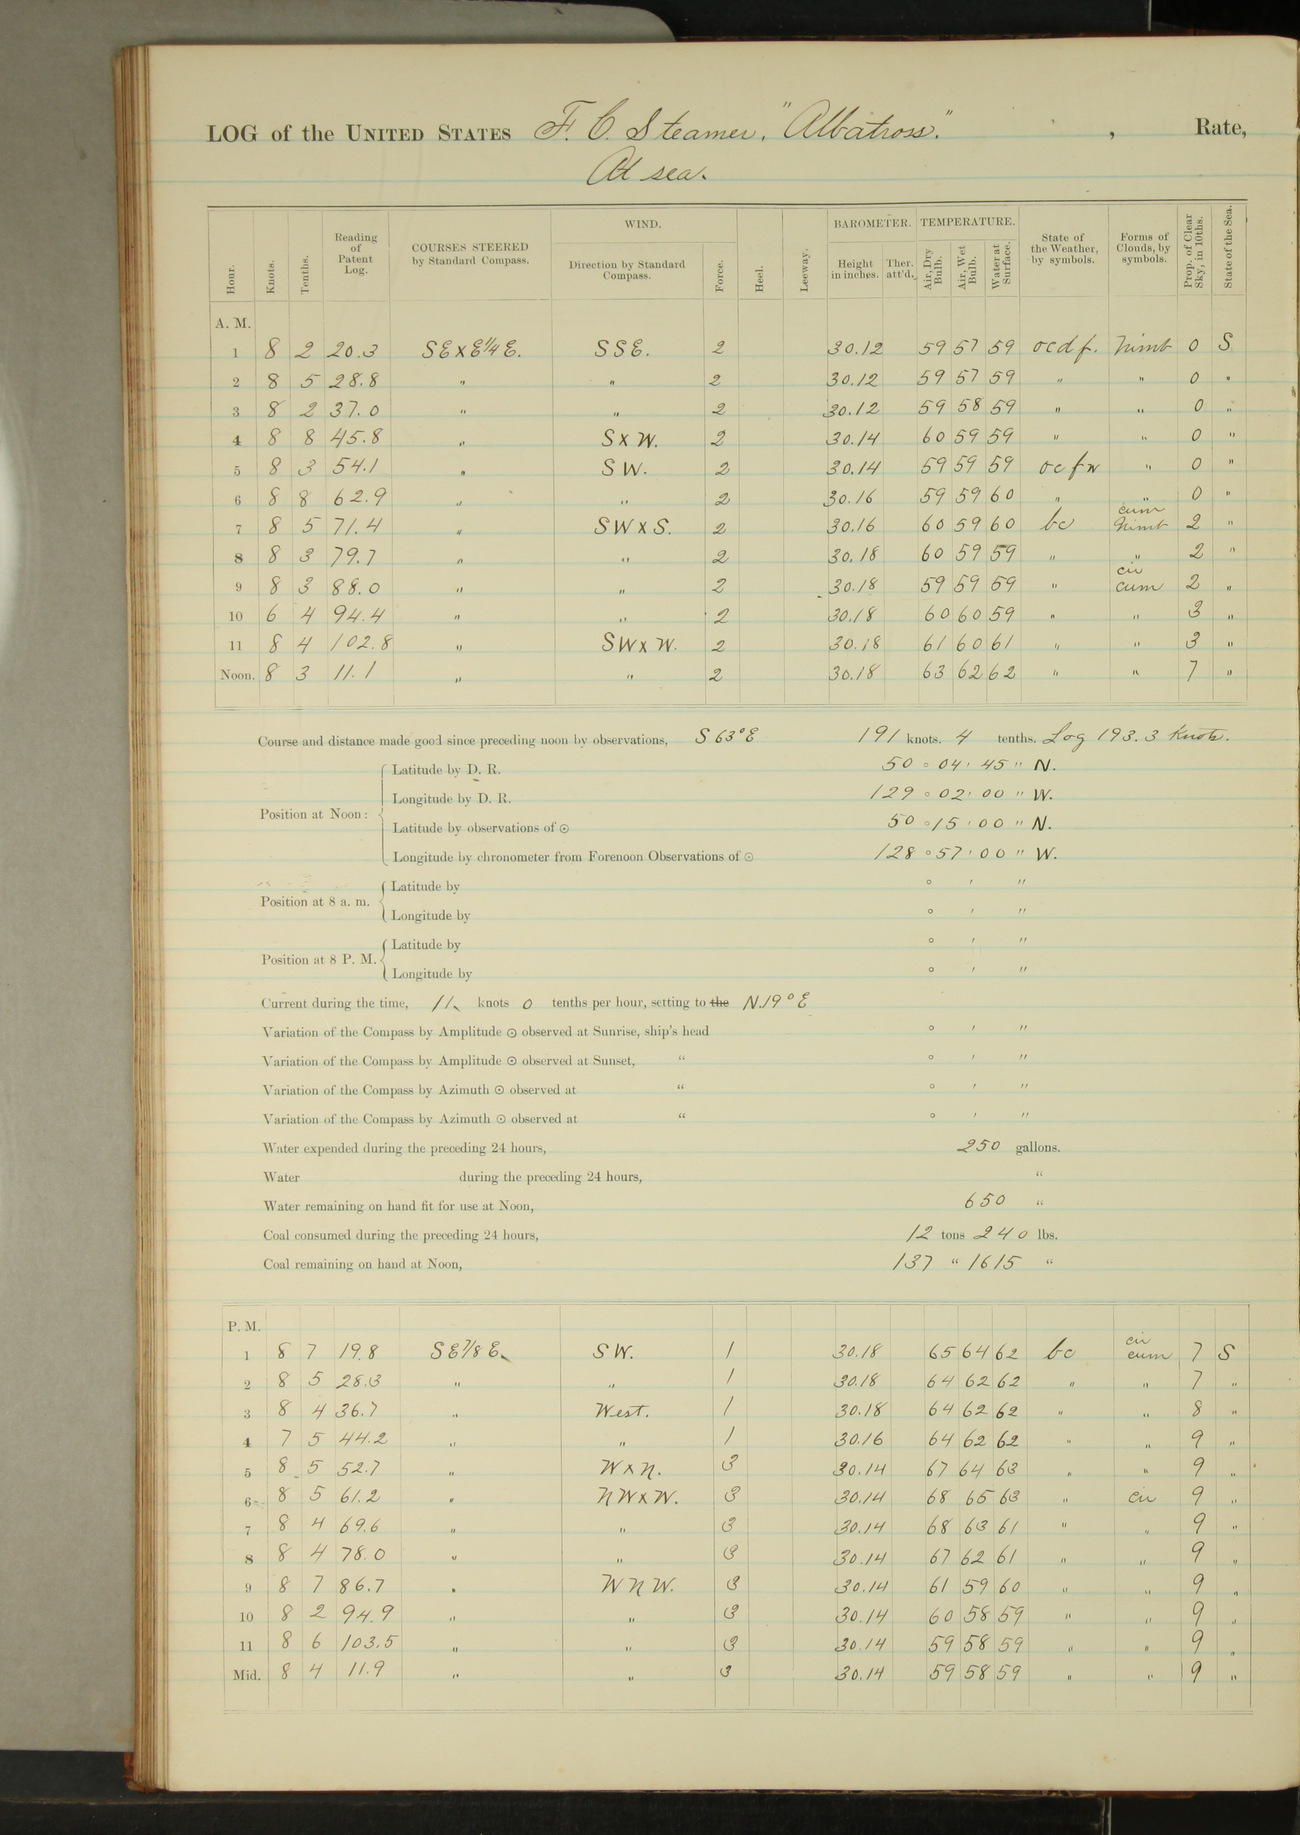 LOG of the UNITED STATES F. C. Steamer, "Albatross." , Rate,
At sea.
Hour. Knots. Tenths. Reading of Patent Log. COURSES STEERED by Standard Compass. WIND. Direction by Standard Compass. Force. Heel. Leeway. BAROMETER. Height in inches. Ther. att'd. TEMPERATURE. Air, Dry Bulb. Air, Wet Bulb. Water at Surface. State of the Weather, by symbols. Forms of Clouds, by symbols. Prop. of Clear Sky, in 10ths. State of the Sea.
A. M.
1 8 2 20.3 SE x E 1/4 E. SSE. 2 30.12 59 57 59 ocdf. Nimb 0 S
2 8 5 28.8 " " 2 30.12 59 57 59 " " 0 "
3 8 2 37.0 " " 2 30.12 59 58 59 " " 0 "
4 8 8 45.8 " S x W. 2 30.14 60 59 59 " " 0 "
5 8 3 54.1 " SW. 2 30.14 59 59 59 ocfw " 0 "
6 8 8 62.9 " " 2 30.16 59 59 60 " " 0 "
7 8 5 71.4 " SW x S. 2 30.16 60 59 60 bc cum Nimb 2 "
8 8 3 79.7 " " 2 30.18 60 59 59 " " 2 "
9 8 3 88.0 " " 2 30.18 59 59 59 " cir cum 2 "
10 6 4 94.4 " " 2 30.18 60 60 59 " " 3 "
11 8 4 102.8 " SW x W. 2 30.18 61 60 61 " " 3 "
Noon. 8 3 11.1 " " 2 30.18 63 62 62 " " 7 "
Course and distance made good since preceding noon by observations, S 63° E 191 knots. 4 tenths. Log 193.3 Knots.
Latitude by D. R. 50 ° 04 ' 45 " N.
Longitude by D. R. 129 ° 02 ' 00 " W.
Position at Noon:
Latitude by observations of ☉ 50 ° 15 ' 00 " N.
Longitude by chronometer from Forenoon Observations of ☉ 128 ° 57 ' 00 " W.
Latitude by ° ' "
Position at 8 a. m.
Longitude by ° ' "
Latitude by ° ' "
Position at 8 P. M.
Longitude by ° ' "
Current during the time, 11. knots 0 tenths per hour, setting to the N.19° E
Variation of the Compass by Amplitude ☉ observed at Sunrise, ship's head ° ' "
Variation of the Compass by Amplitude ☉ observed at Sunset, " ° ' "
Variation of the Compass by Azimuth ☉ observed at " ° ' "
Variation of the Compass by Azimuth ☉ observed at " ° ' "
Water expended during the preceding 24 hours, 250 gallons.
Water during the preceding 24 hours, "
Water remaining on hand fit for use at Noon, 650 "
Coal consumed during the preceding 24 hours, 12 tons 240 lbs.
Coal remaining on hand at Noon, 137 " 1615 "
P. M.
1 8 7 19.8 SE 7/8 E. SW. 1 30.18 65 64 62 bc cir cum 7 S
2 8 5 28.3 " " 1 30.18 64 62 62 " " 7 "
3 8 4 36.7 " West. 1 30.18 64 62 62 " " 8 "
4 7 5 44.2 " " 1 30.16 64 62 62 " " 9 "
5 8 5 52.7 " W x N. 3 30.14 67 64 63 " " 9 "
6 8 5 61.2 " NW x W. 3 30.14 68 65 63 " cir 9 "
7 8 4 69.6 " " 3 30.14 68 63 61 " " 9 "
8 8 4 78.0 " " 3 30.14 67 62 61 " " 9 "
9 8 7 86.7 " WNW. 3 30.14 61 59 60 " " 9 "
10 8 2 94.9 " " 3 30.14 60 58 59 " " 9 "
11 8 6 103.5 " " 3 30.14 59 58 59 " " 9 "
Mid. 8 4 11.9 " " 3 30.14 59 58 59 " " 9 "